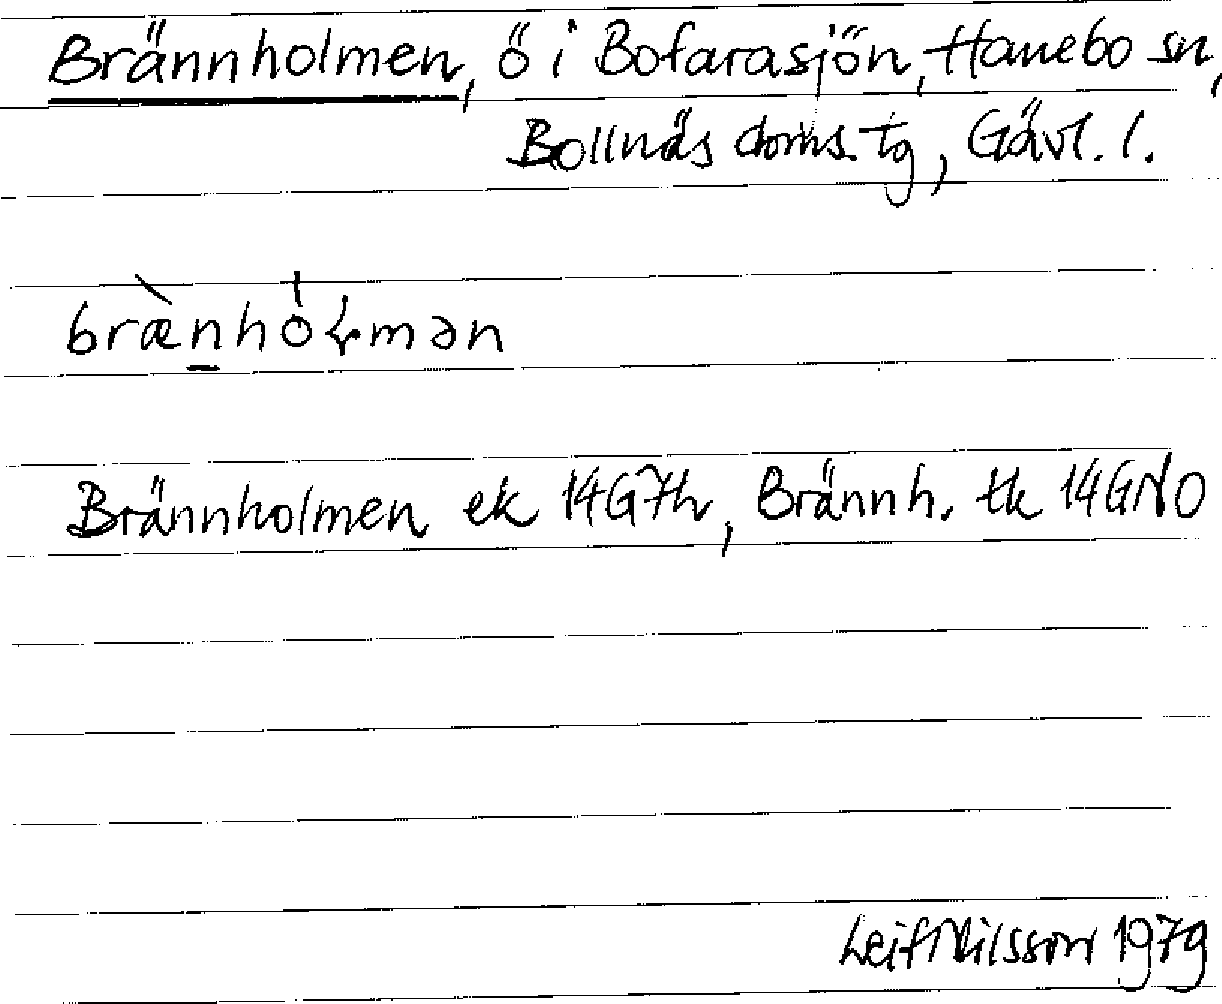 Brännholmen, ö i Bofarasjön, Hanebo sn,
Bollnäs doms. tg, Gävl. l.
bræ̀n̲hò̍ɬmən
Brännholmen ek 14G7h, Brännh. tk 14GNO
Leif Nilsson 1979